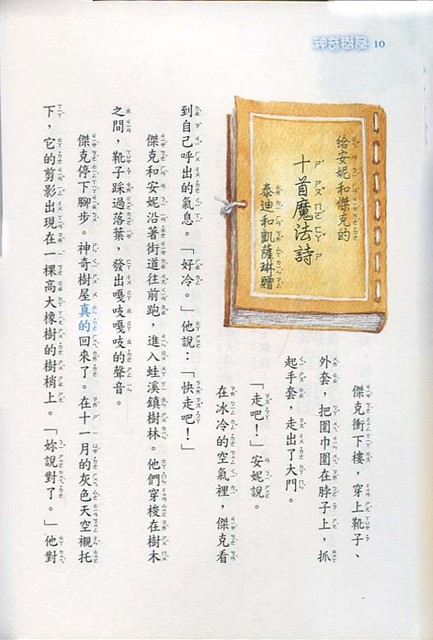 神奇樹屋 10
給安妮和傑克的
十首魔法詩
泰迪和凱薩琳贈
傑克衝下樓,穿上靴子、
外套,把圍巾圍在脖子上,抓
起手套,走出了大門。
「走吧!」安妮說。
在冰冷的空氣裡,傑克看
到自己呼出的氣息。「好冷。」他說:「快走吧!」
傑克和安妮沿著街道往前跑,進入蛙溪鎮樹林。他們穿梭在樹木
之間,靴子踩過落葉,發出嘎吱嘎吱的聲音。
傑克停下腳步。神奇樹屋真的回來了。在十一月的灰色天空襯托
下,它的剪影出現在一棵高大橡樹的樹梢上。「妳說對了。」他對